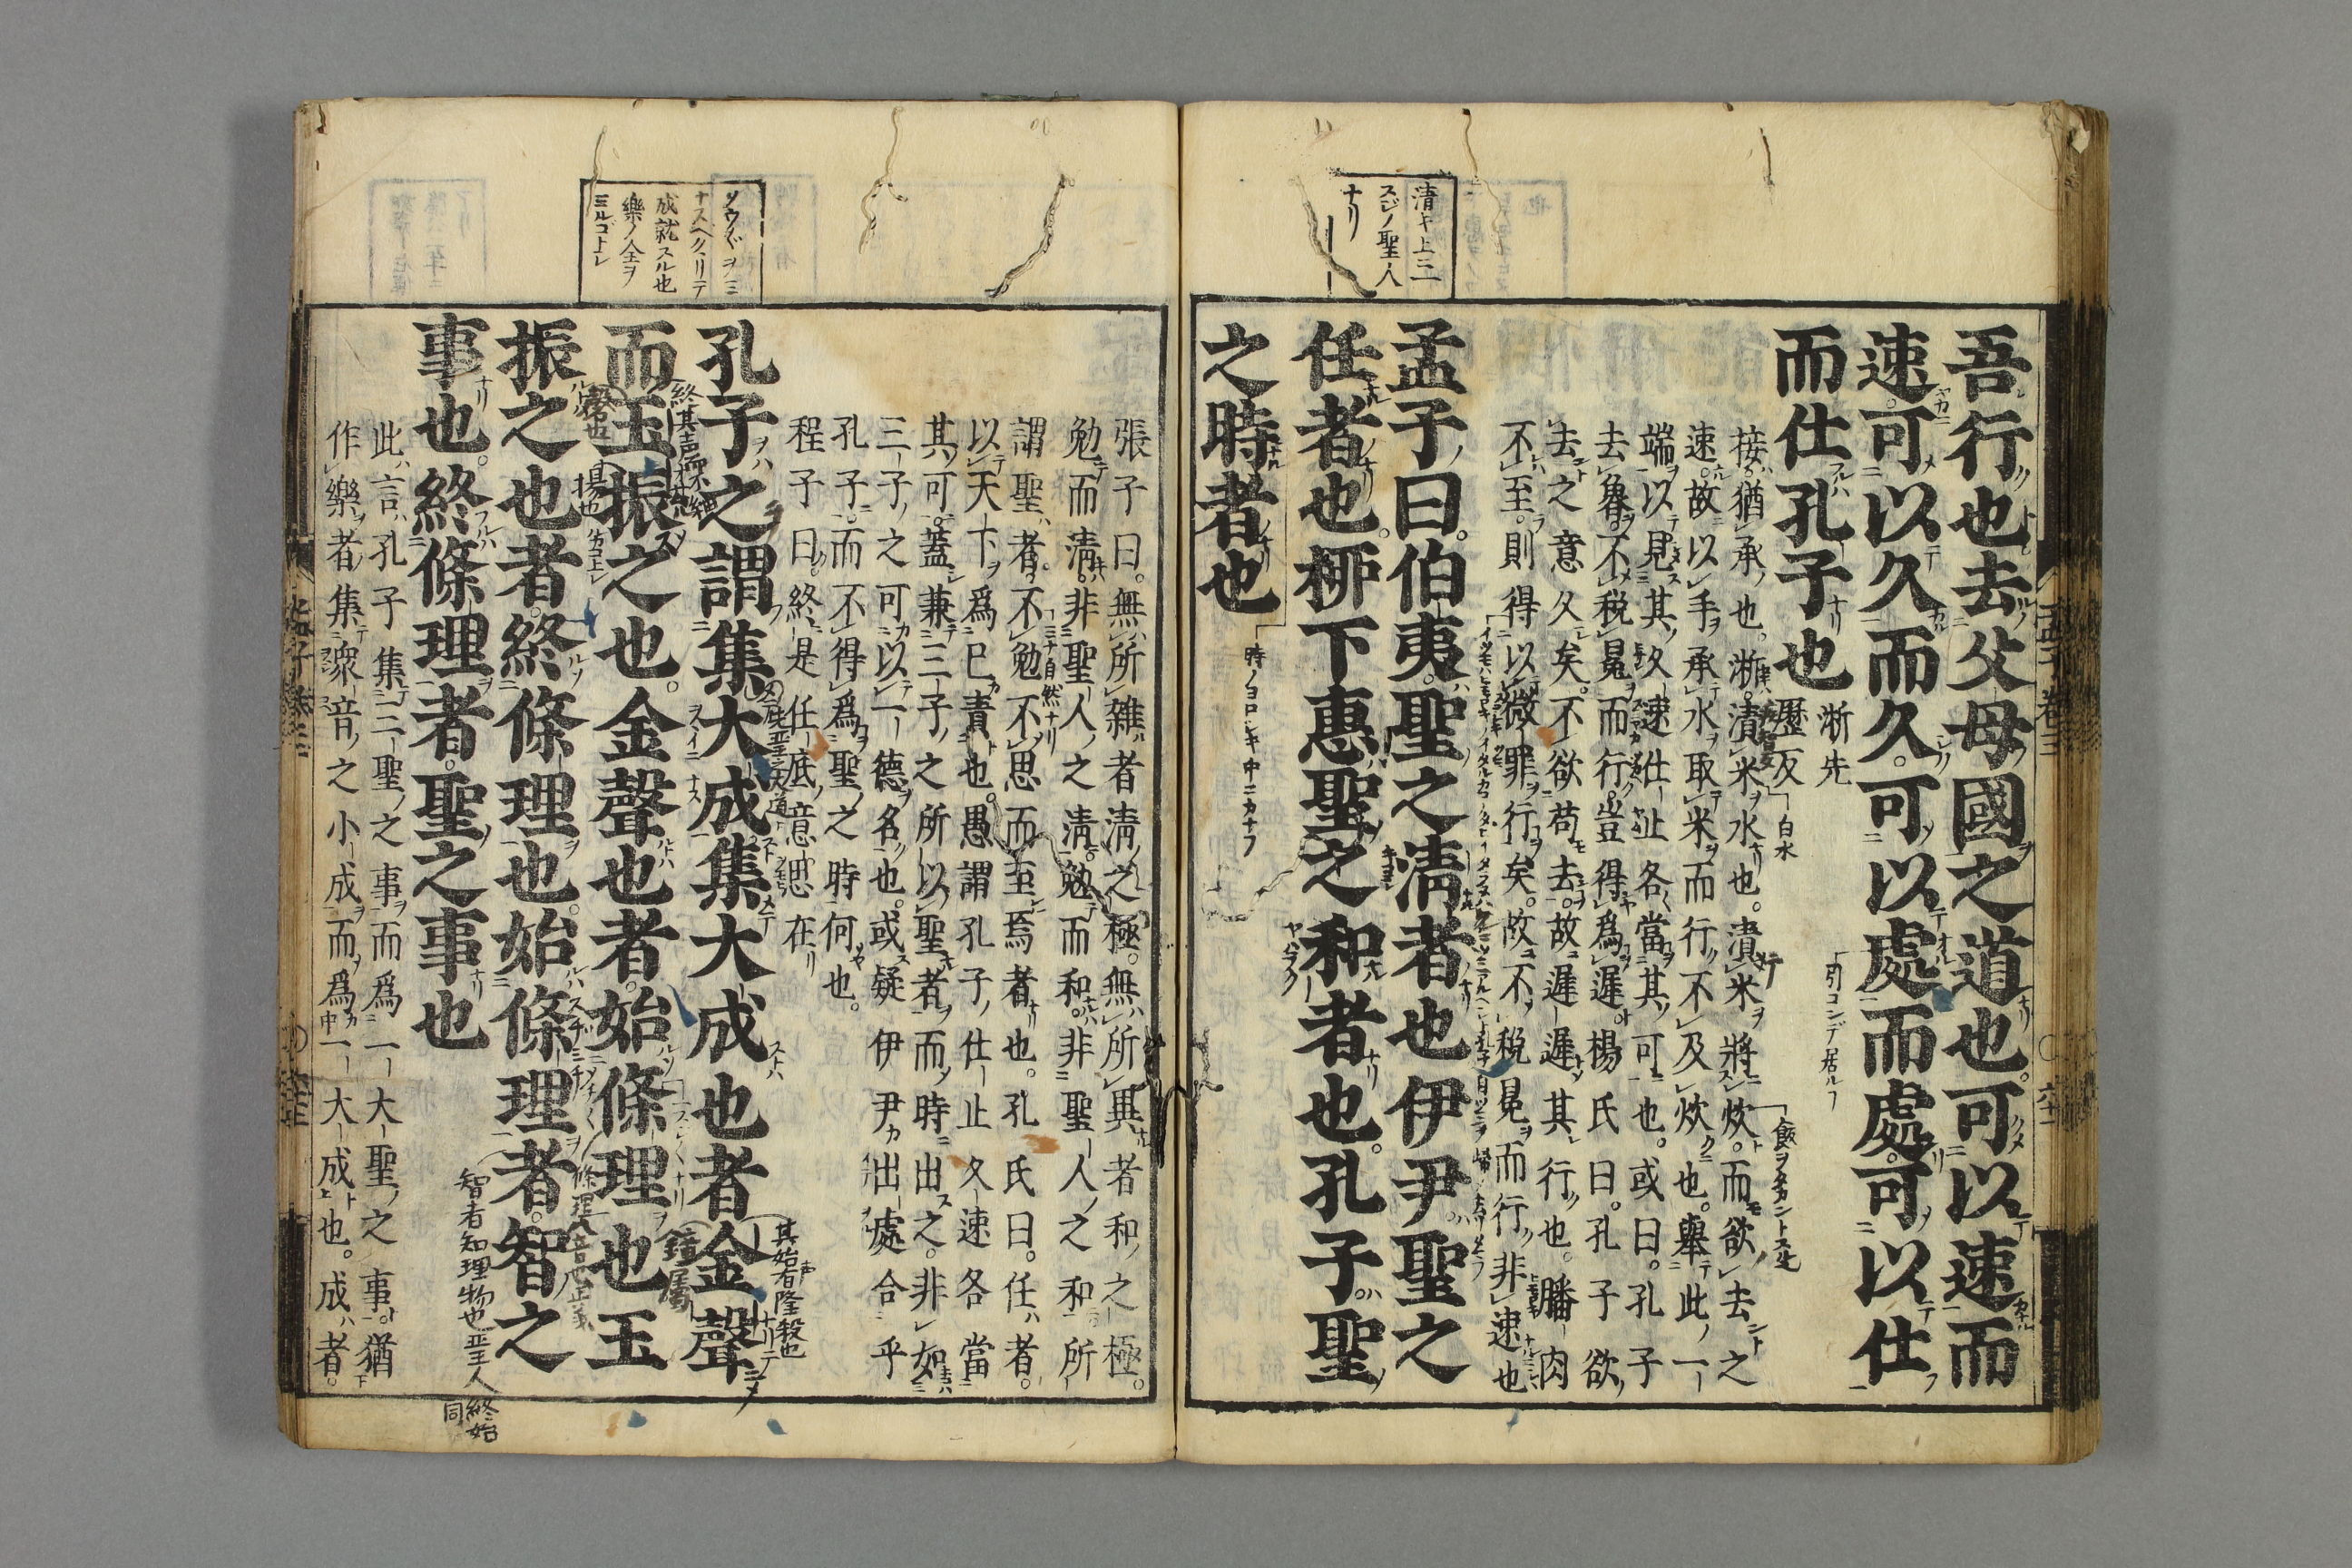 吾行也。去父母國之道也。可以速而
速。可以久而久。可以處而處。可以仕
而仕孔子也
淅先
歷反
接。猶承也。淅。漬米水也。漬米將炊。而欲去之
速。故以手承水取米而行。不及炊也。舉此一
端以見其久速仕止各當其可也。或曰。孔子
去魯。不税冕而行。豈得爲遲。楊氏曰。孔子欲
去之意久矣。不欲苟去。故遲遲其行也。膰肉
不至。則得以微罪行矣。故不税冕而行。非速也
孟子曰。伯夷。聖之清者也伊尹。聖之
任者也。柳下惠聖之和者也。孔子。聖
之時者也
清キ上三
スジノ聖人
ナリ
張子曰。無所雜者清之極。無所異者和之極。
勉而清。非聖人之清。勉而和。非聖人之和。所
謂聖者。不勉不思而至焉者也。孔氏曰。任者。
以天下爲己責也。愚謂孔子仕止久速各當
其可。蓋兼三子之所以聖者而時出之。非如
三子之可以一德名也。或疑伊尹出處合乎
孔子。而不得爲聖之時何也。
程子曰。終是任底意思在
孔子之謂集大成集大成也者金聲
而玉振之也。金聲也者。始條理也玉
振之也者。終條理也。始條理者。智之
事也。終條理者。聖之事也
此言孔子集三聖之事而爲一大聖之事。猶
作樂者集衆音之小成而爲一大成也。成者。
成就スル也
樂ノ全ヲ
其始有隆殺也
智者知理物也聖人
終始
同